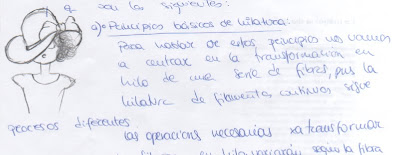 q son las siguientes:
a) Principios básicos de hilatura:
Para hablar de estos principios nos vamos
a centrar en la transformación en
hilo de una serie de fibras, pues la
hilatura de filamentos continuos sigue
procesos diferentes
las operaciones necesarias xa transformar
fibras en hilo variarán según la fibra